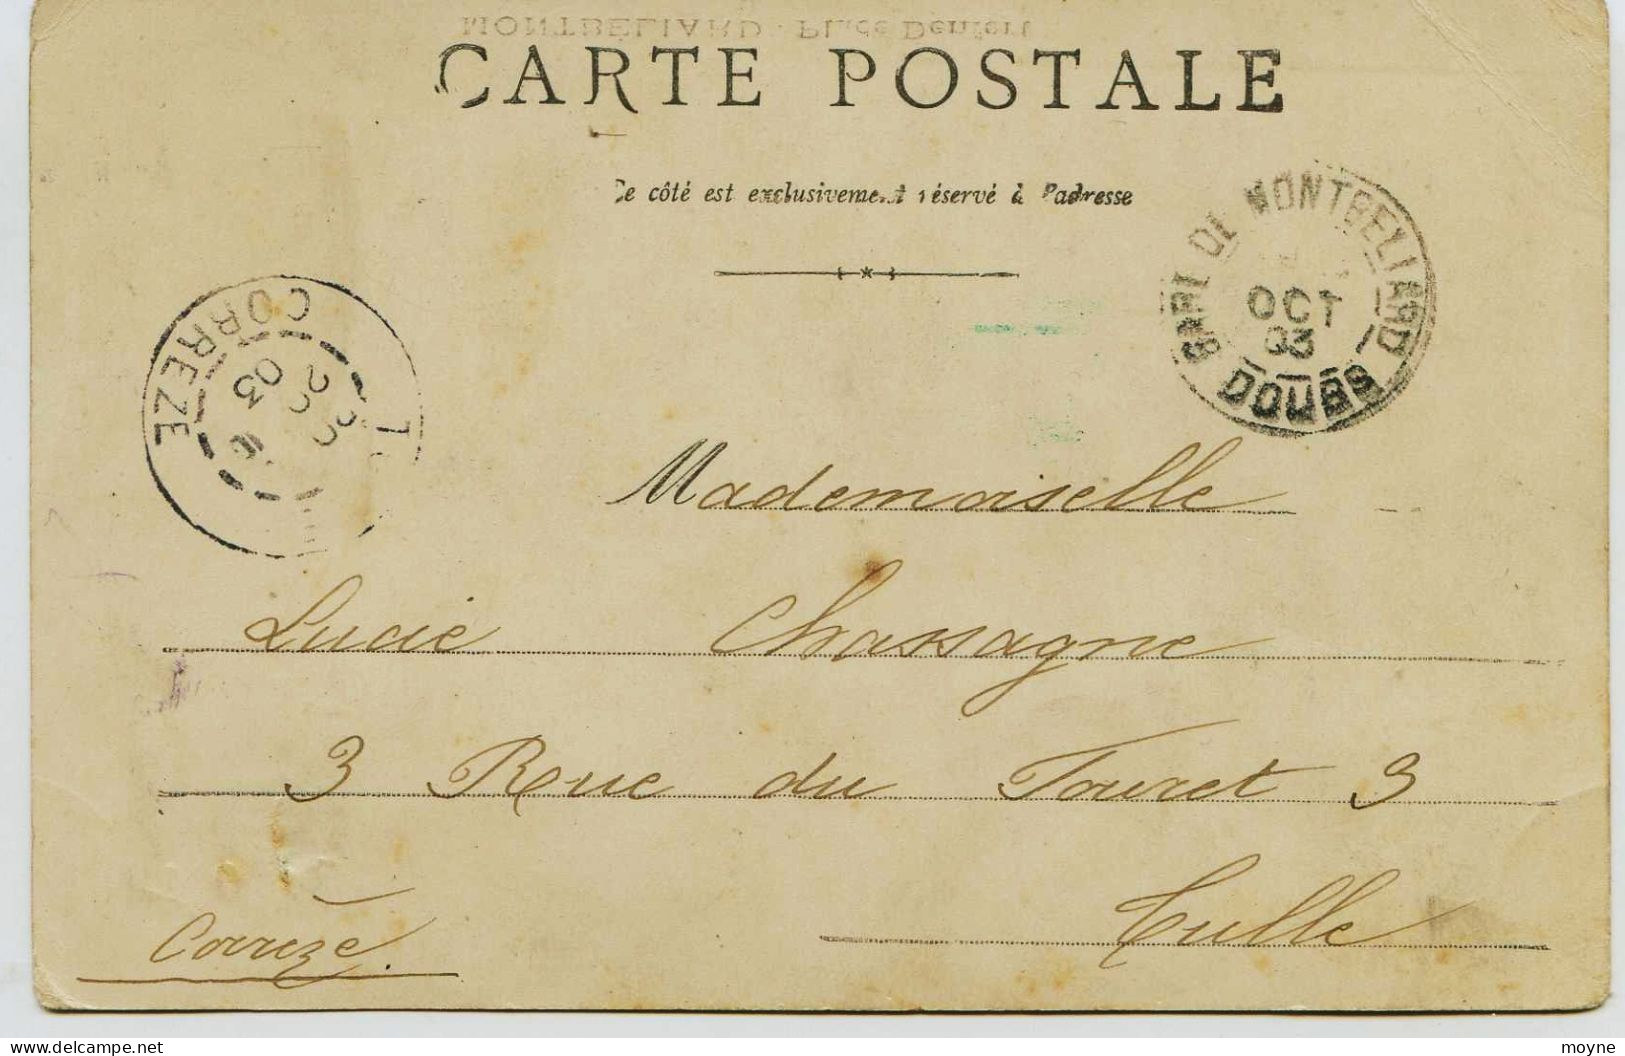 MONTBÉLIARD - Place Denfert
CARTE POSTALE
Ce côté est exclusivement réservé à l'adresse
GARE DE MONTBELIARD
OCT
03
DOUBS
CORREZE
OCT
03
Mademoiselle
Lucie Chassagne
3 Rue du Touret 3
Tulle
Corrèze.
delcampe.net
moyne